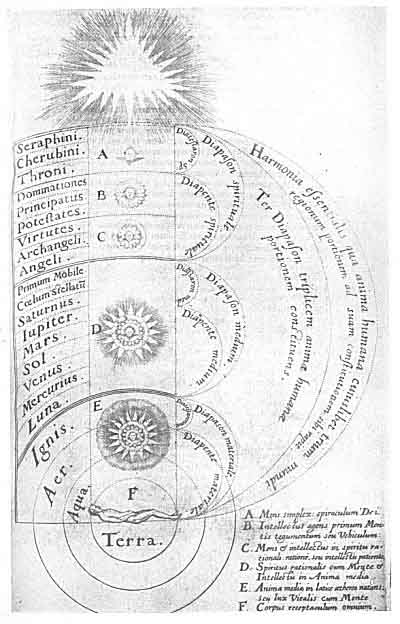 Seraphini.
Cherubini.
Throni.
Dominationes
Principatus
Potestates.
Virtutes.
Archangeli.
Angeli.
Primum Mobile
Cœlum Stellatũ
Saturnus.
Iupiter.
Mars.
Sol.
Venus.
Mercurius.
Luna.
Ignis.
Aer.
Aqua.
Terra.
A
B
C
D
E
F
Diapason spirituale
Diapente spirituale
Diapason medium.
Diapente medium
Diapason materiale.
Diapente materiale
Harmonia essentialis qua anima humana cuiuslibet trium
regionum portionem ad suam
mundi
Ter Diapason triplicem animæ humanæ
portionem constituens.
A Mens simplex: spiraculum Dei.
B. Intellectus agens primum Men-
tis tegumentum seu Vehiculum:
C. Mens & intellectus in spiritu ra-
tionali
D. Spiritus rationalis cum Mente &
Intellectu in Anima media.
E. Anima media in
seu lux Vitalis cum Mente
F. Corpus receptaculum omnium.